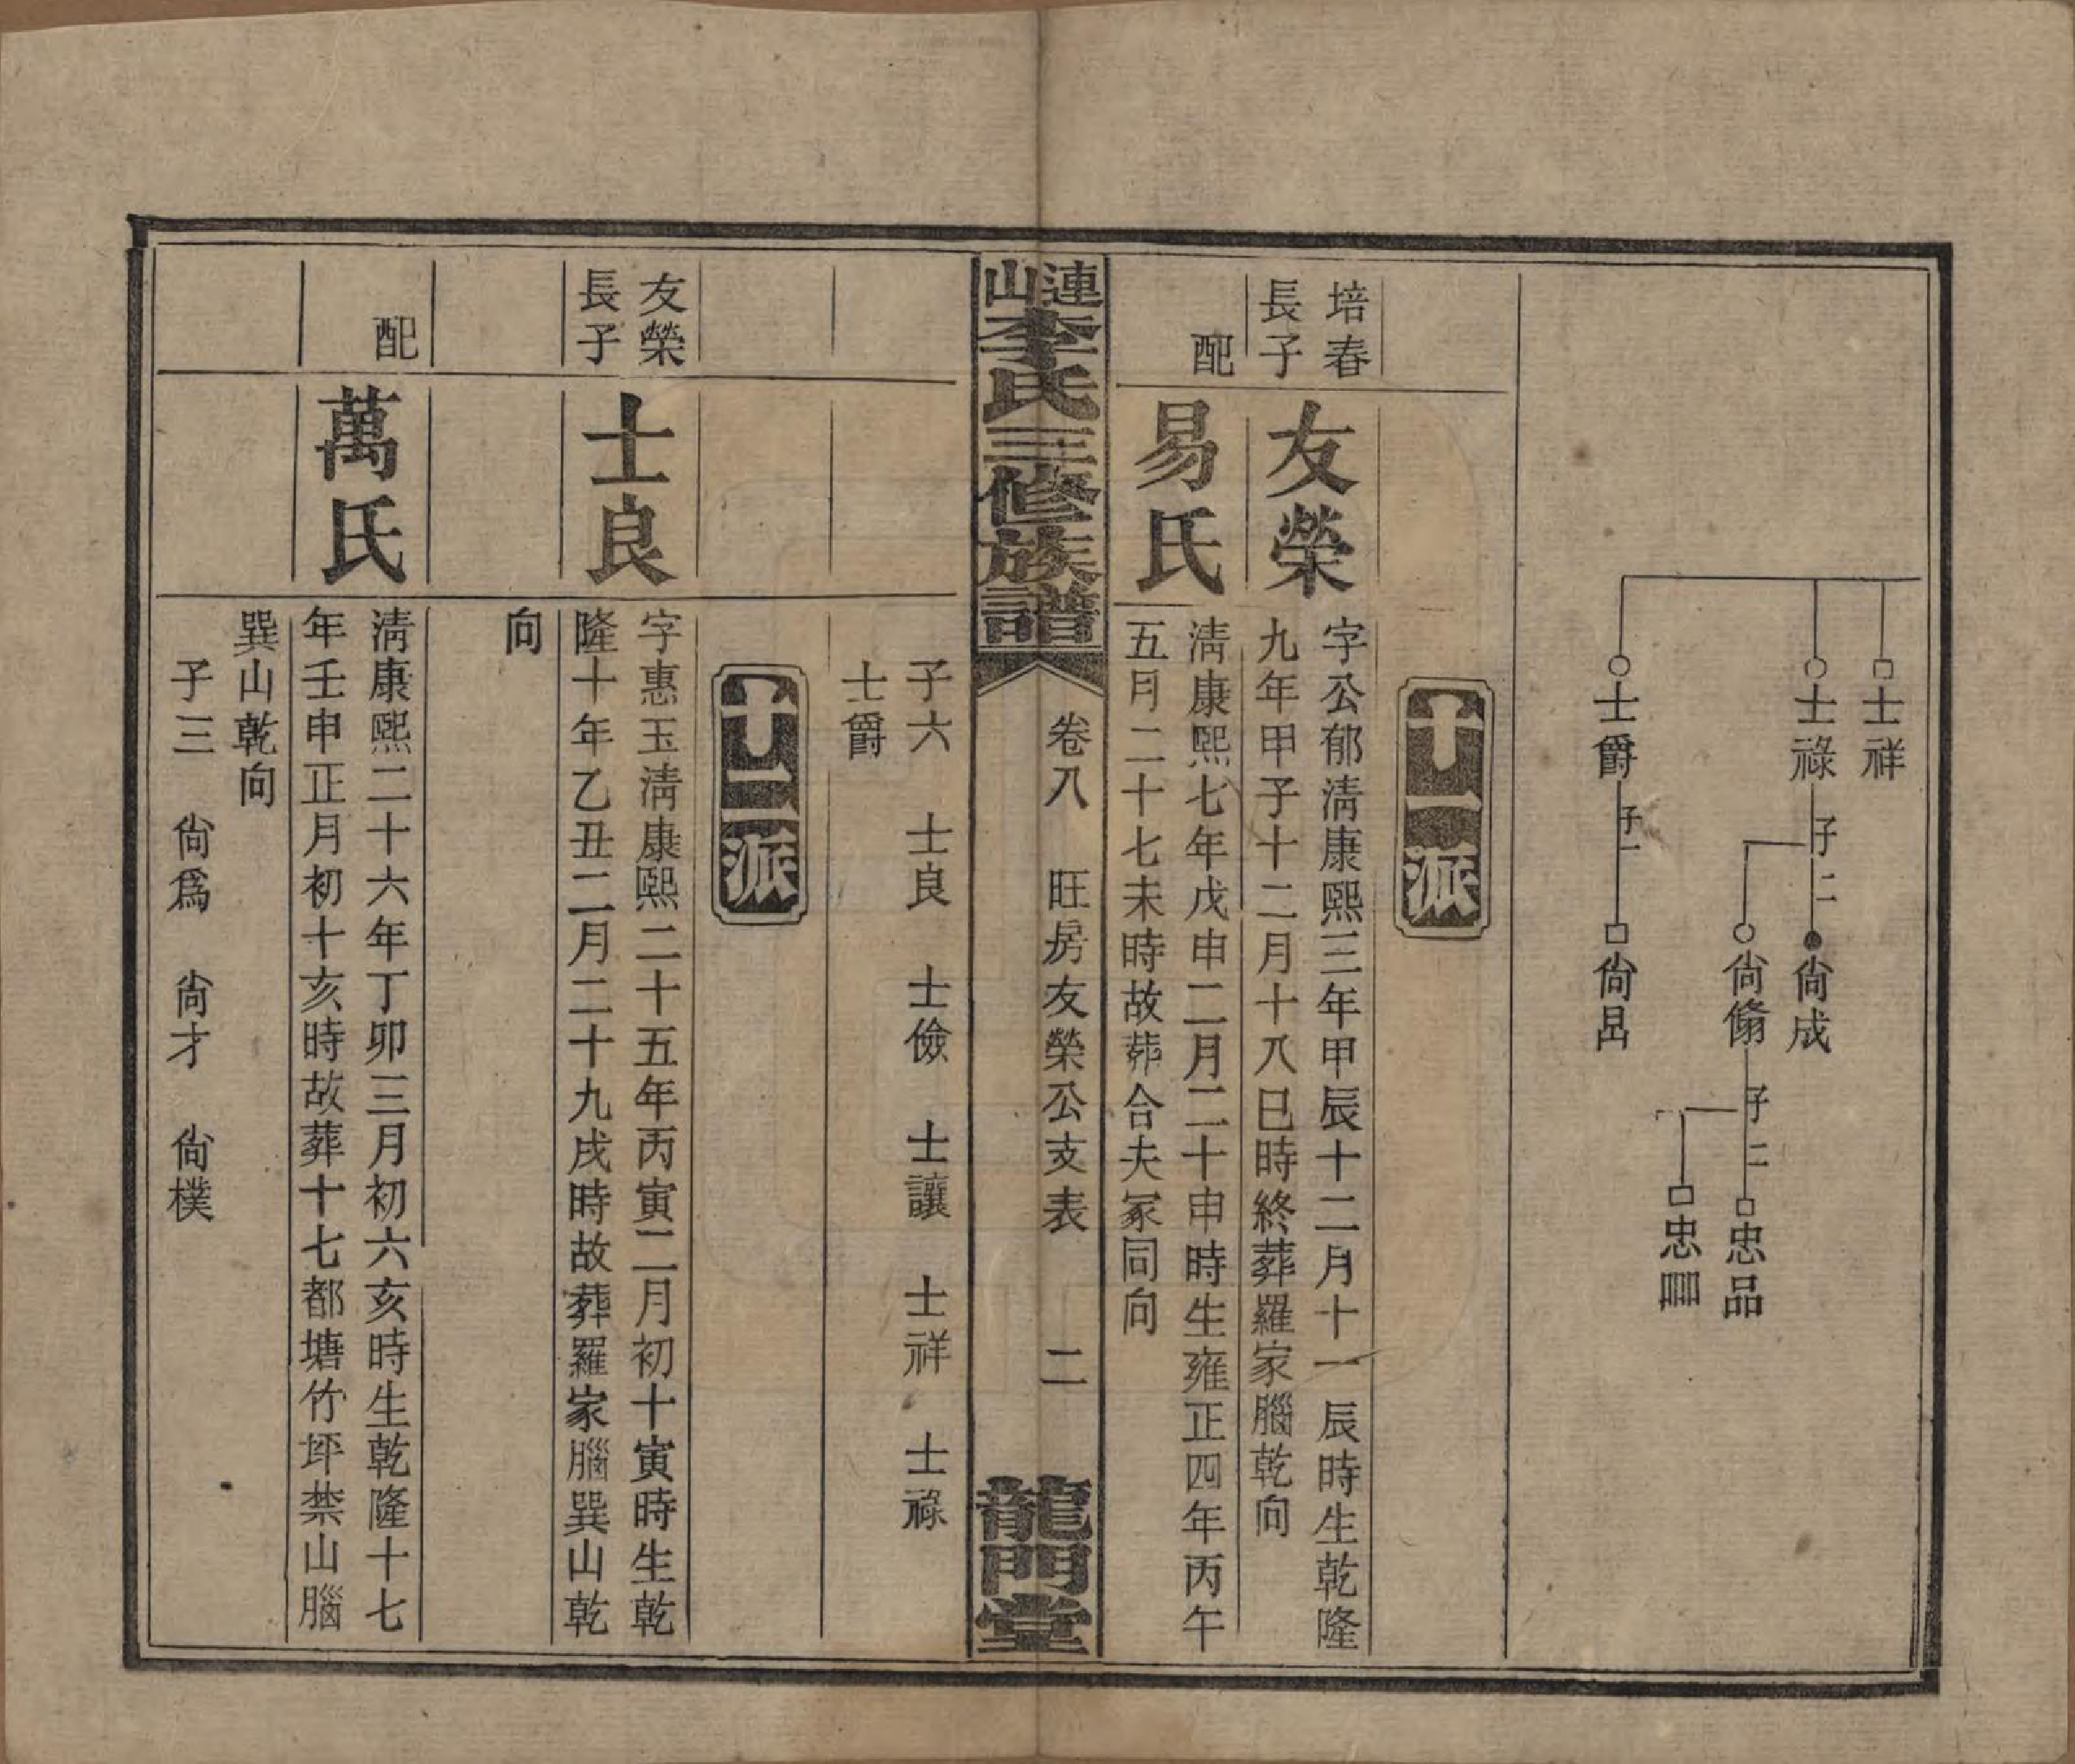 士祥
士祿 子二
尙成
尙脩 子二
忠品
士爵 子一
尙昌
十一派
培春長子
友榮
字公郁淸康熙三年甲辰十二月十一辰時生乾隆
九年甲子十二月十八巳時終葬羅家腦乾向
配
易氏
淸康熙七年戊申二月二十申時生雍正四年丙午
五月二十七未時故葬合夫冢同向
連山李氏三修族譜
卷八 旺房友榮公支表 二
龍門堂
子六 士良 士儉 士讓 士祥 士祿
士爵
十二派
友榮長子
士良
字惠玉淸康熙二十五年丙寅二月初十寅時生乾
隆十年乙丑二月二十九戌時故葬羅家腦巽山乾
向
配
萬氏
淸康熙二十六年丁卯三月初六亥時生乾隆十七
年壬申正月初十亥時故葬十七都塘竹坪禁山腦
巽山乾向
子三 尙爲 尙才 尙樸